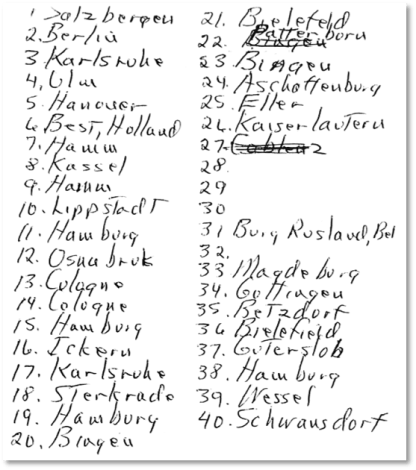 1. Salzbergen
2. Berlin
3. Karlsruhe
4. Ulm
5. Hanover
6. Best, Holland
7. Hamm
8. Kassel
9. Hamm
10. Lippstadt
11. Hamburg
12. Osnabruk
13. Cologne
14. Cologne
15. Hamburg
16. Ickern
17. Karlsruhe
18. Sterkrade
19. Hamburg
20. Bingen
21. Bielefeld
22. Bingen Patterborn
23. Bingen
24. Aschoffenburg
25. Eller
26. Kaiserlautern
27.
28.
29
30
31 Burg Rusland, Bel
32.
33 Magdeburg
34. Gottingen
35. Betzdorf
36 Bielefield
37. Guterslob
38. Hamburg
39. Wessel
40. Schwansdorf